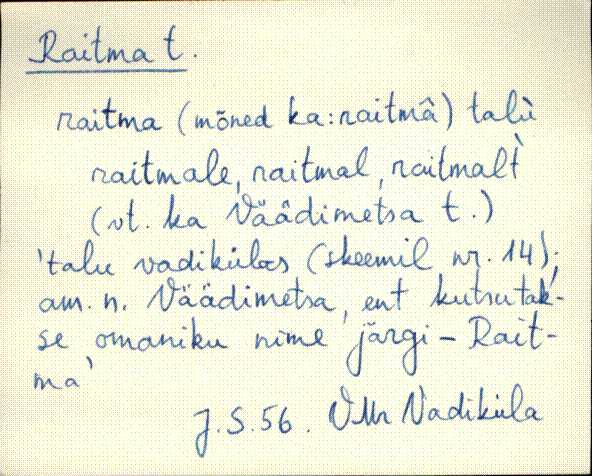 Raitma t.
raitma (mõned ka: raitmâ) talù
raitmale, raitmal, raitmalt̀
(vt. ka Väädimetsa t.)
'talu vadikülas (skeemil nr. 14);
am. n. Väädimetsa, ent kutsutak-
se omaniku nime järgi - Rait-
ma'
J.S.56. VMr Vadiküla